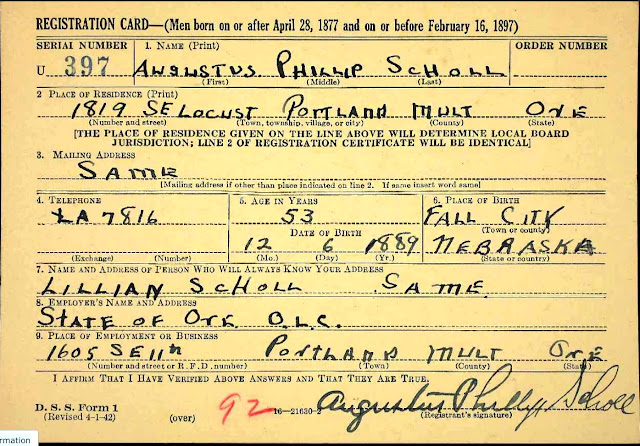 REGISTRATION CARD—(Men born on or after April 28, 1877 and on or before February 16, 1897)
SERIAL NUMBER 1. NAME (Print) ORDER NUMBER
U 397 AUGUSTUS PHILLIP SCHOLL
(First) (Middle) (Last)
2 PLACE OF RESIDENCE (Print)
1819 SE LOCUST PORTLAND MULT ORE
(Number and street) (Town, township, village, or city) (County) (State)
[THE PLACE OF RESIDENCE GIVEN ON THE LINE ABOVE WILL DETERMINE LOCAL BOARD
JURISDICTION; LINE 2 OF REGISTRATION CERTIFICATE WILL BE IDENTICAL]
3. MAILING ADDRESS
SAME
[Mailing address if other than place indicated on line 2. If same insert word same]
4. TELEPHONE 5. AGE IN YEARS 6. PLACE OF BIRTH
LA 7816 53 FALL CITY
DATE OF BIRTH (Town or county)
12 6 1889 NEBRASKA
(Exchange) (Number) (Mo.) (Day) (Yr.) (State or country)
7. NAME AND ADDRESS OF PERSON WHO WILL ALWAYS KNOW YOUR ADDRESS
LILLIAN SCHOLL SAME
8. EMPLOYER'S NAME AND ADDRESS
STATE OF ORE O.L.C.
9. PLACE OF EMPLOYMENT OR BUSINESS
1605 SE 11th PORTLAND MULT ORE
(Number and street or R. F. D. number) (Town) (County) (State)
I AFFIRM THAT I HAVE VERIFIED ABOVE ANSWERS AND THAT THEY ARE TRUE.
D. S. S. Form 1
(Revised 4-1-42) (over) 92 16—21630-2 Augustus Phillip Scholl
(Registrant's signature)
rmation